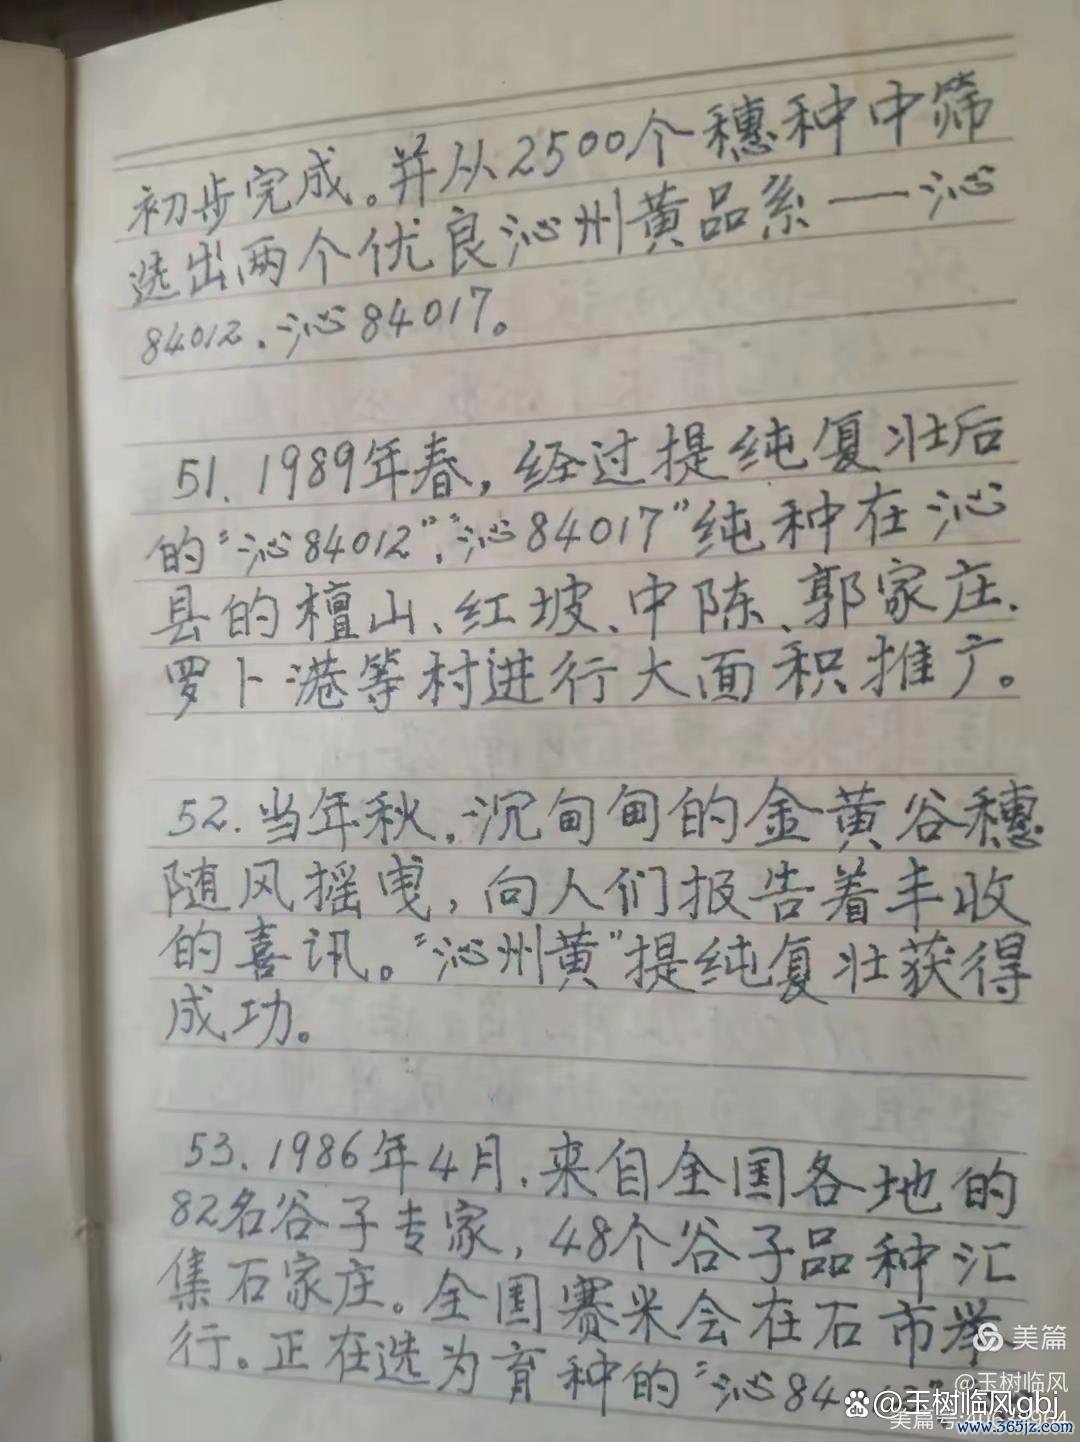 初步完成。并从2500个穗种中筛
选出两个优良沁州黄品系——沁
84012、沁84017。
51、1989年春，经过提纯复壮后
的“沁84012”、“沁84017”纯种在沁
县的檀山、红坡、中陈、郭家庄、
罗卜港等村进行大面积推广。
52.当年秋，沉甸甸的金黄谷穗
随风摇曳，向人们报告着丰收
的喜讯。“沁州黄”提纯复壮获得
成功。
53、1986年4月，来自全国各地的
82名谷子专家，48个谷子品种汇
集石家庄。全国赛米会在石市举
行。正在选为育种的“沁84
美篇
@玉树临风
@玉树临风gbj
美篇号:
www.365jz.com